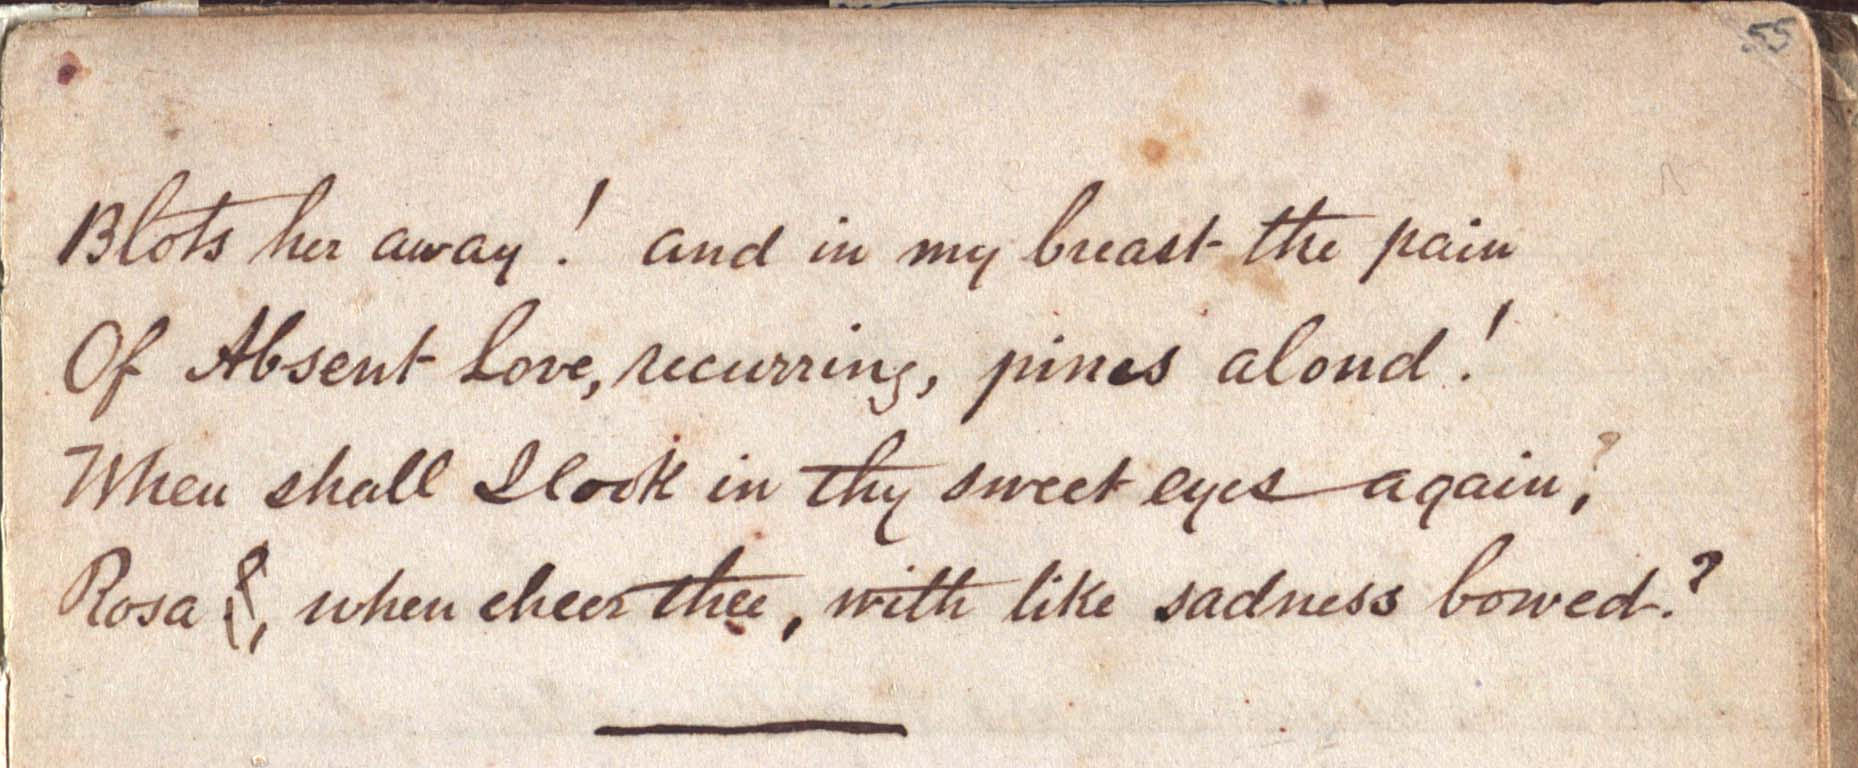 55
Blots her away! and in my breast the pain
Of Absent Love, recurring, pines aloud!
When shall I look in thy sweet eyes again,
Rosa, when cheer thee, with like sadness bowed?